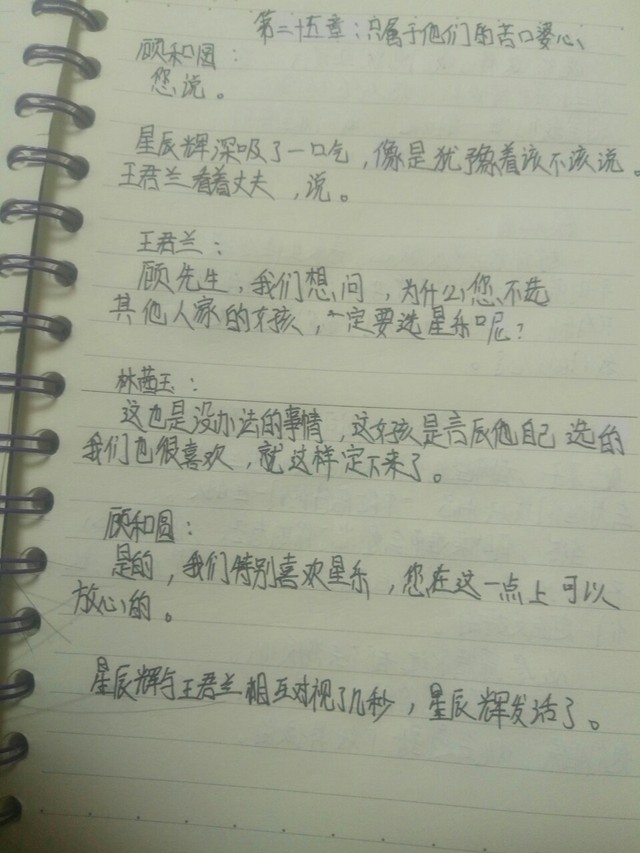 第二十五章：只属于他们的苦口婆心
顾和圆：
您说。
星辰辉深吸了一口气，像是犹豫着该不该说。
王君兰看着丈夫，说。
王君兰：
顾先生，我们想问，为什么您不选
其他人家的女孩，一定要选星乐呢？
林茜玉：
这也是没办法的事情，这女孩是言辰他自己选的
我们也很喜欢，就这样定下来了。
顾和圆：
是的，我们特别喜欢星乐，您在这一点上可以
放心的。
星辰辉与王君兰相互对视了几秒，星辰辉发话了。